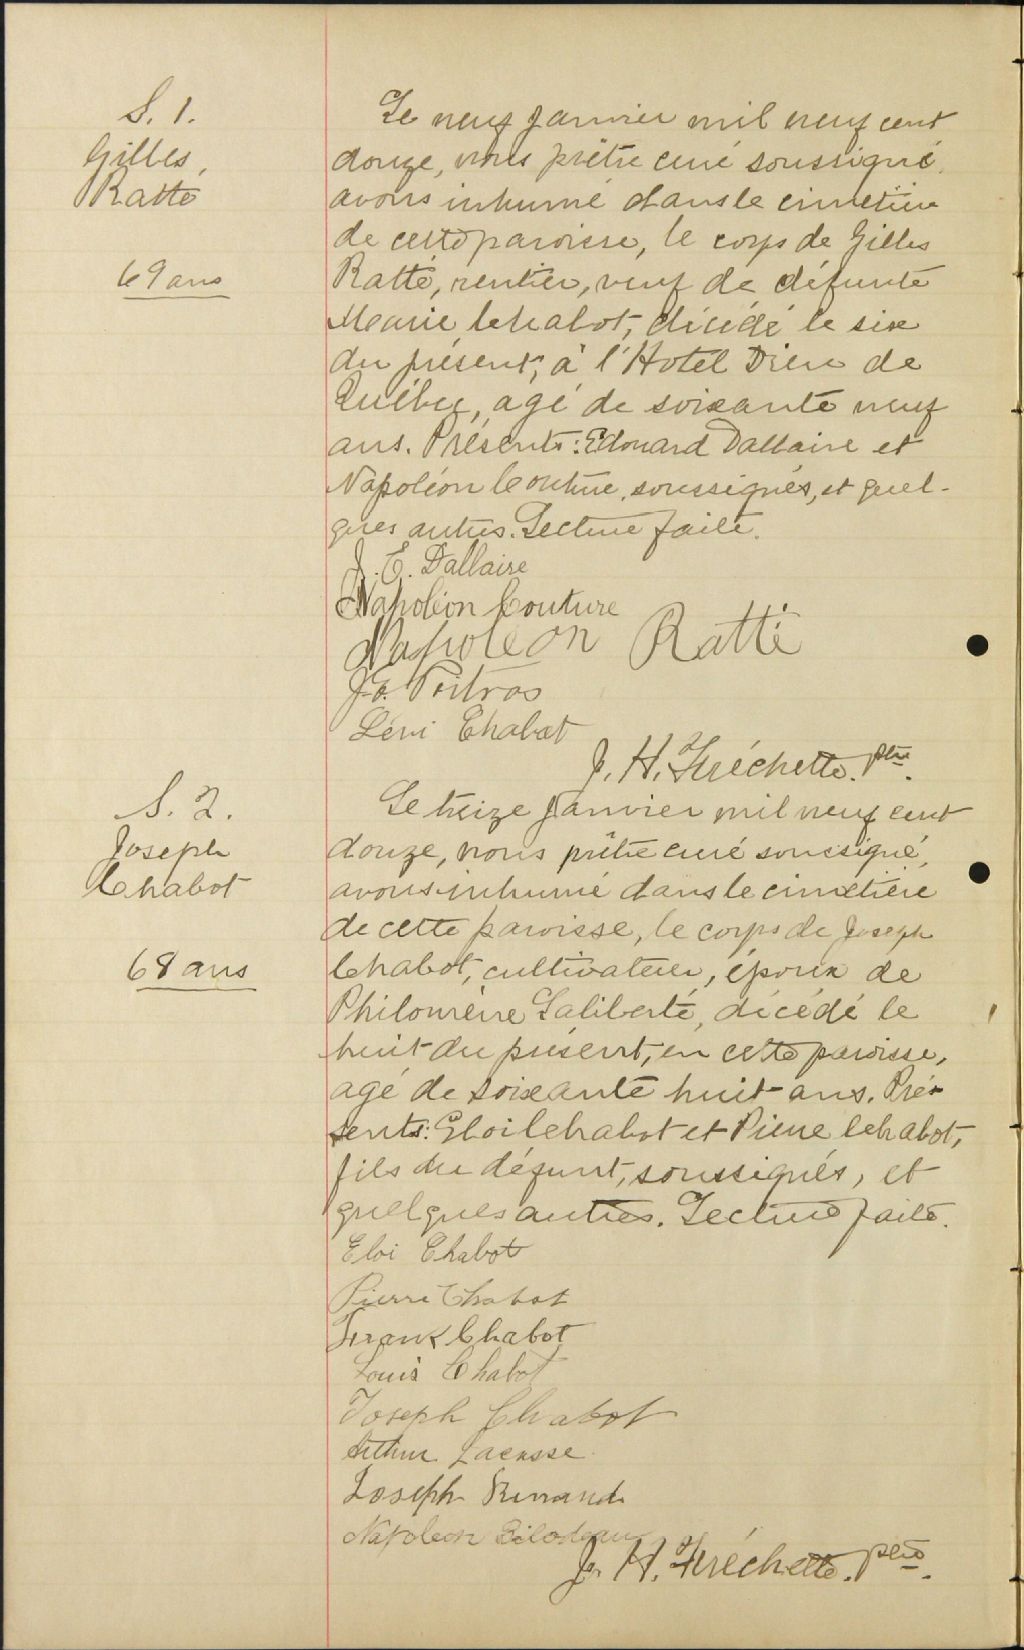 S. 1.
Gilles
Ratté
69 ans
Le neuf janvier mil neuf cent
douze, nous prêtre curé soussigné
avons inhumé dans le cimetière
de cette paroisse, le corps de Gilles
Ratté, rentier, veuf de défunte
Marie Chabot, décédé le six
du présent, à l'Hotel Dieu de
Québec, agé de soixante neuf
ans. Présents: Edouard Dallaire et
Napoléon Couture, soussignés, et quel-
ques autres. Lecture faite.
J. E. Dallaire
Napoléon Couture
Napoleon Ratté
J. E. Poitras
Lévi Chabot
J. H. Fréchette. ptre.
S. 2.
Joseph
Chabot
68 ans
Le treize janvier mil neuf cent
douze, nous prêtre curé soussigné,
avons inhumé dans le cimetière
de cette paroisse, le corps de Joseph
Chabot, cultivateur, époux de
Philomène Laliberté, décédé le
huit du présent, en cette paroisse,
agé de soixante huit ans. Pré-
sents: Eloi Chabot et Pierre Chabot,
fils du défunt, soussignés, et
quelques autres. Lecture faite.
Eloi Chabot
Pierre Chabot
Frank Chabot
Louis Chabot
Joseph Chabot
Arthur Lacasse
Joseph
Napoleon Bilodeau
J. H. Fréchette. ptre.